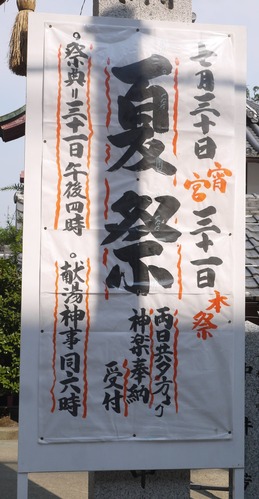 七月三十日 宵宮 三十一日 本祭
夏祭
両日共夕方より
神楽奉納
受付
。祭典〃三十一日午後四時
。献湯神事同六時